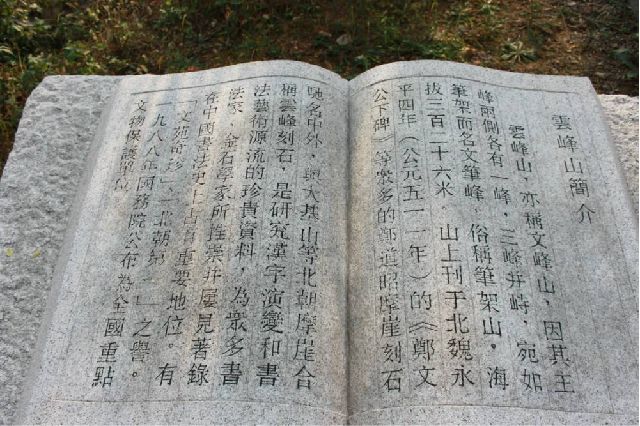 雲峰山簡介
雲峰山，亦稱文峰山，因其主
峰兩側各有一峰，三峰并峙，宛如
筆架而名文筆峰，俗稱筆架山，海
拔三百二十六米，山上刊于北魏永
平四年（公元五一一年）的《鄭文
公下碑》等衆多的鄭道昭摩崖刻石
馳名中外，與大基山等北朝摩崖合
稱雲峰刻石，是研究漢字演變和書
法藝術源流的珍貴資料，為衆多書
法家、金石學家所推崇并屢見著錄
在中國書法史上占有重要地位。有
「文苑奇珍」、「北朝第一」之譽。
一九八八年國務院公布為全國重點
文物保護單位。